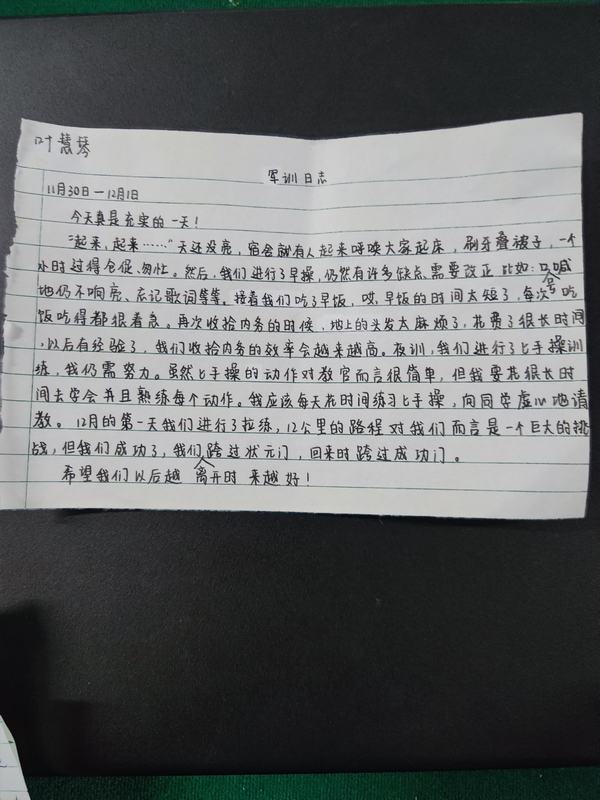 叶慧琴
军训日志
11月30日一12月1日
今天真是充实的一天！
"起来，起来……"天还没亮，宿舍就有人起来呼唤大家起床，刷牙叠被子，一个
小时过得仓促、匆忙。然后，我们进行了早操，仍然有许多缺点需要改正比如：口号喊
地仍不响亮、忘记歌词等等。接着我们吃了早饭，哎，早饭的时间太短了，每次吃
饭吃得都很着急。再次收拾内务的时候，地上的头发太麻烦了，花费了很长时间
，以后有经验了，我们收拾内务的效率会越来越高。夜训，我们进行了匕手操训
练，我仍需努力。虽然匕手操的动作对教官而言很简单，但我要花很长时
间去学会并且熟练每个动作。我应该每天花时间练习匕手操，向同学虚心地请
教。12月的第一天我们进行了拉练，12公里的路程对我们而言是一个巨大的挑
战，但我们成功了，我们离开时跨过状元门，回来时跨过成功门。
希望我们以后越来越好！